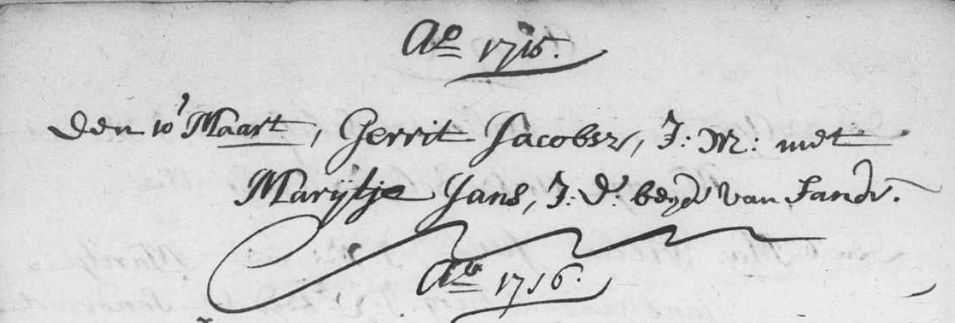 Ao 1715.
den 10 Maart, Gerrit Jacobsz, J: M: met
Marijtje Jans, J: D: beyde van Landr.
Ao 1716.